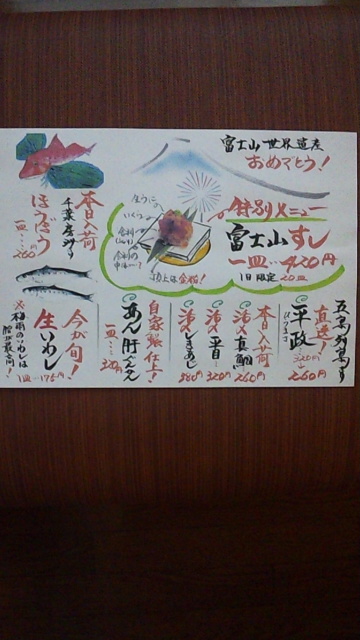 富士山世界遺産
おめでとう!
特別メニュー
富士山すし
一皿…420円
1日限定20皿
うに
いくら
頂上は金箔!
本日入荷
千葉房州より
ほうぼう
一皿…260円
五島列島より
直送!
平政
ひらまさ
320円
260円
本日入荷
活〆真鯛 260円
活〆平目 320円
活〆しまあじ 380円
自家製仕上!
あん肝ぐんかん
一皿…320円
今が旬!
生いわし
一皿…175円
※梅雨のいわしは
脂が最高!